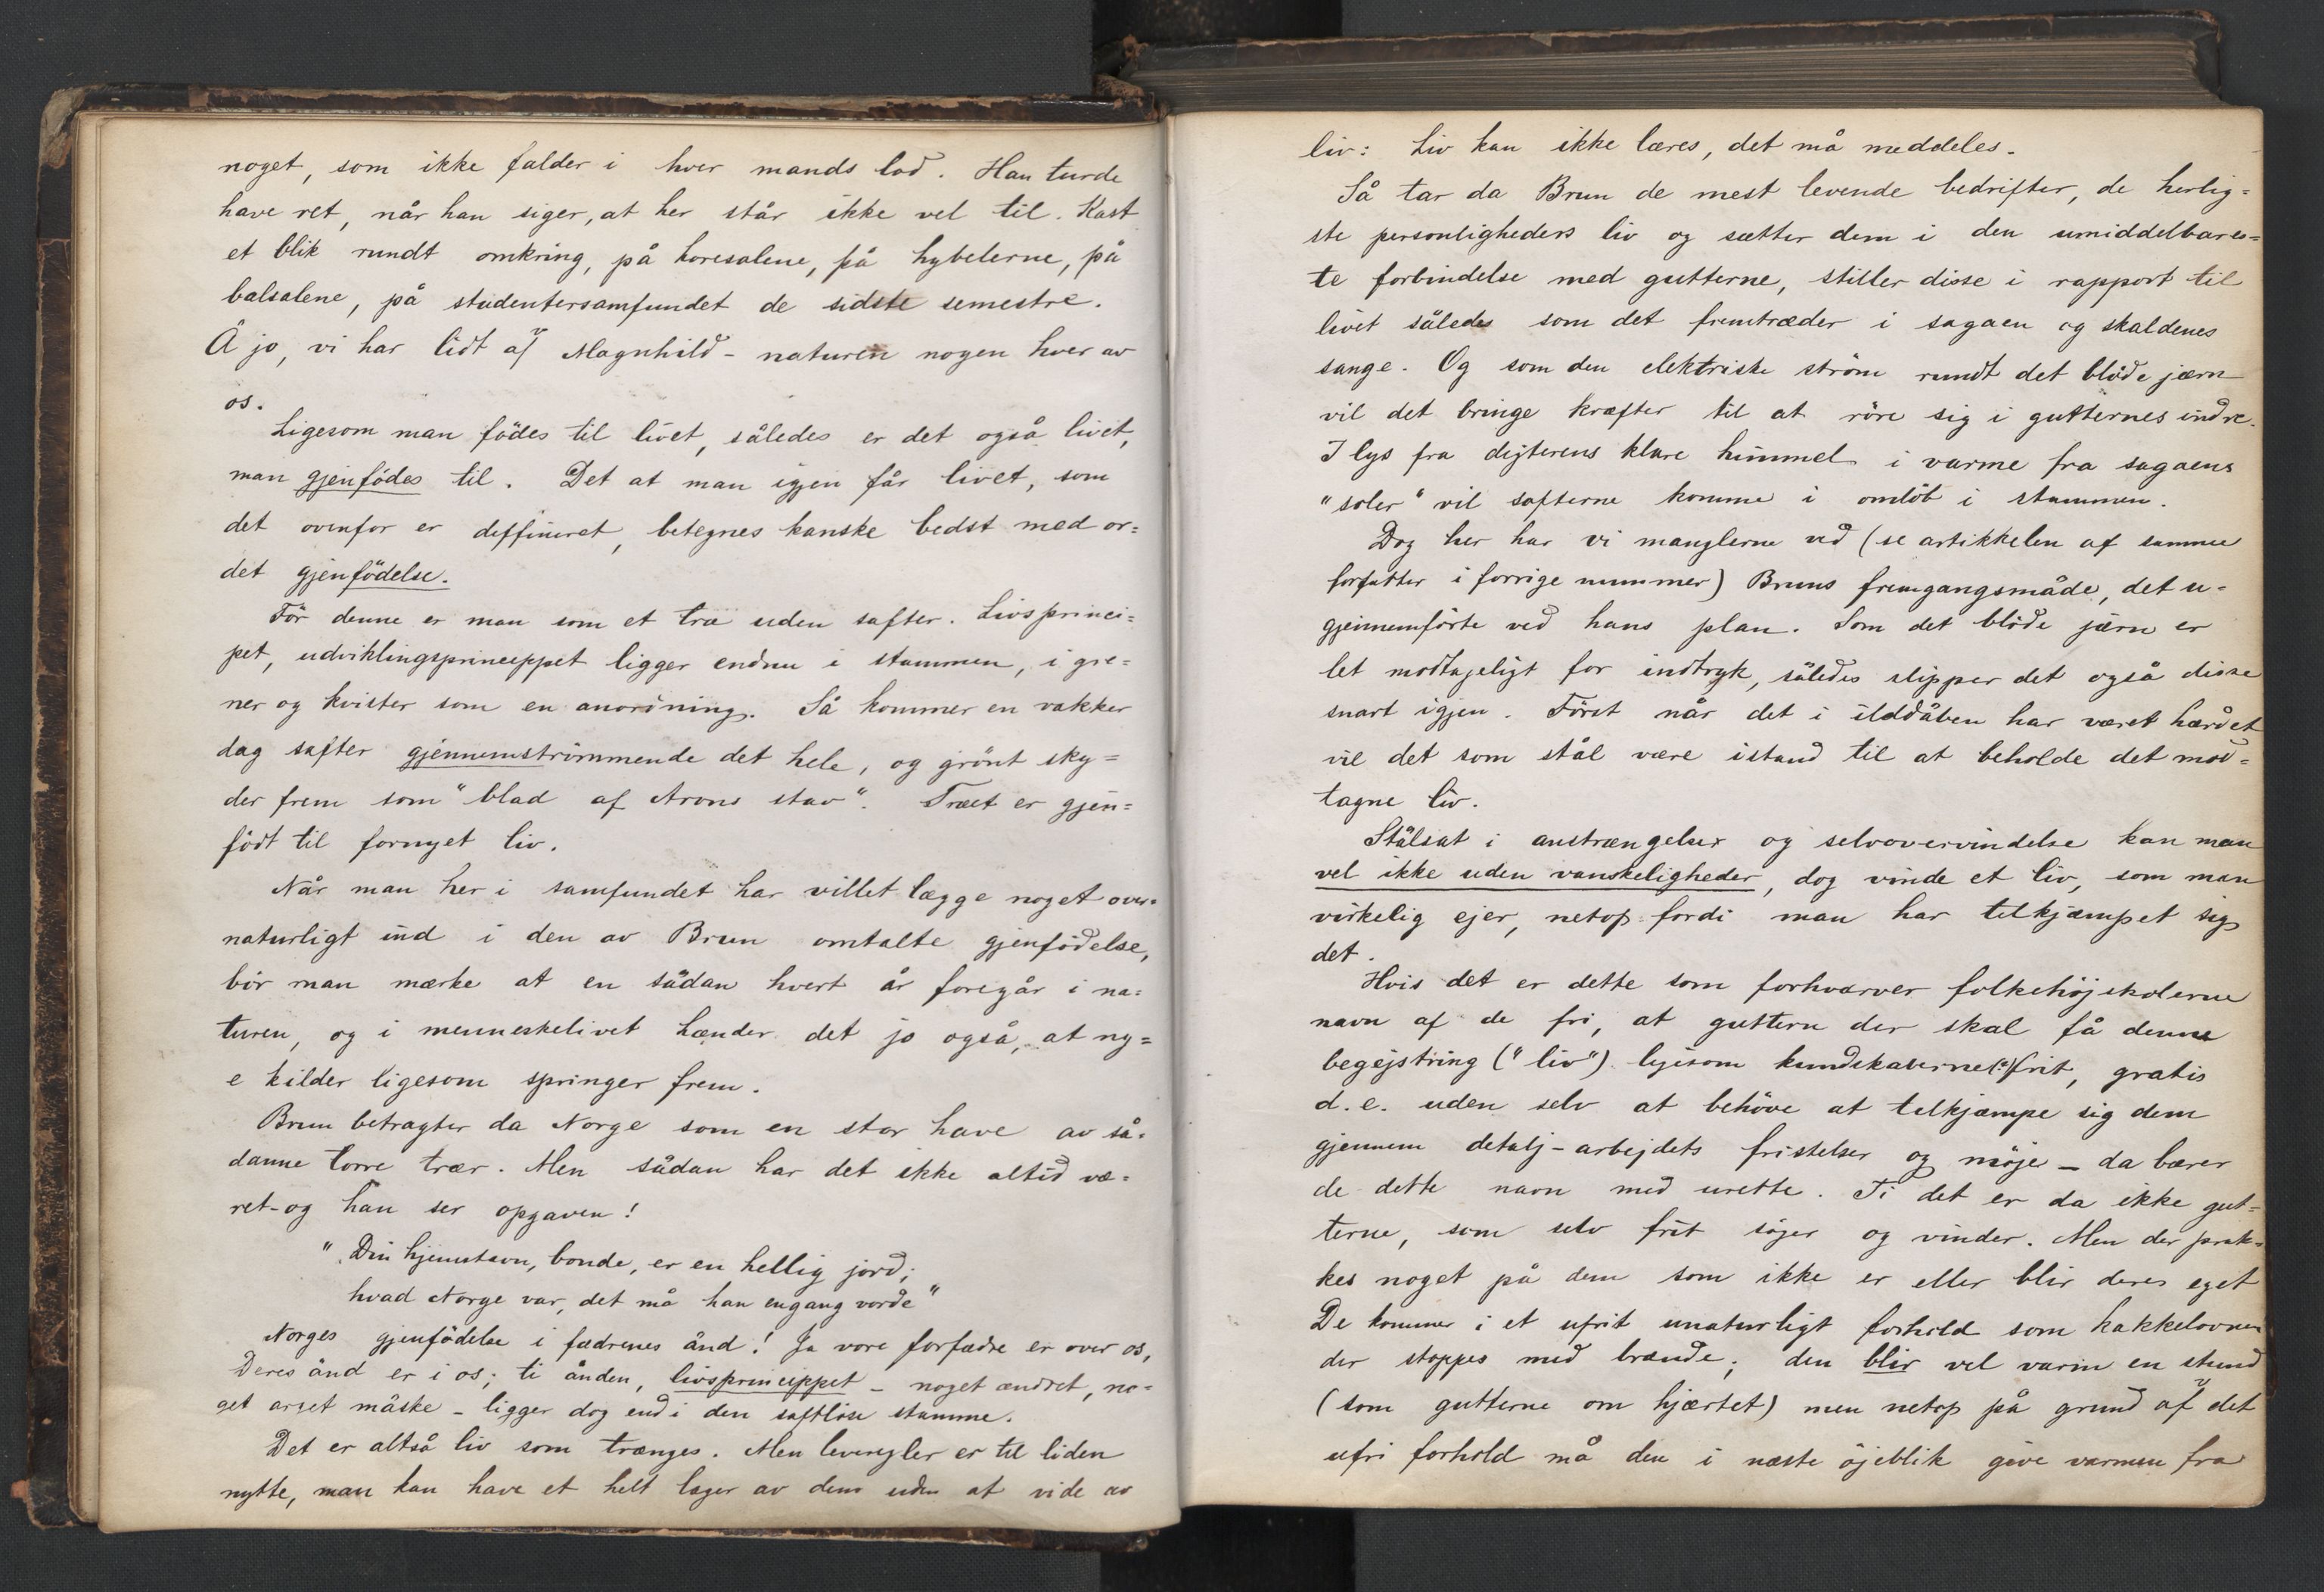 noget, som ikke falder i hver mands lod. Han turde
have ret, når han siger, at her står ikke vel til. Kast
et blik rundt omkring, på høresalene, på hybelerne, på
balsalene, på studentersamfundet de sidste semestre.
Å jo, vi har lidt af Magnhild-naturen nogen hver av
os.
Ligesom man födes til livet, således er det også livet,
man gjenfödes til. Det at man igjen får livet, som
det ovenfor er deffineret, betegnes kanske bedst med or=
det gjenfödelse.
För denne er man som et træ uden safter. Livsprinci=
pet, udviklingsprincippet ligger endnu i stammen, i gre=
ner og kvister som en anordning. Så kommer en vakker
dag safter gjennemströmmende det hele, og grönt sky=
der frem som "blad af Arons stav". Træet er gjen=
födt til fornyet liv.
Når man her i samfundet har villet lægge noget over=
naturligt ind i den av Brun omtalte gjenfödelse,
bör man mærke at en sådan hvert år foregår i na=
turen, og i menneskelivet hænder det jo også, at ny=
e kilder ligesom springer frem.
Brun betragter da Norge som en stor have av så=
danne tørre trær. Men sådan har det ikke altid væ=
ret-og han ser opgaven!
"Din hjemstavn, bonde, er en hellig jord;
hvad Norge var, det må han engang vorde"
Norges gjenfödelse i fædrenes ånd! Ja vore forfædre er over os,
Deres ånd er i os; ti ånden, livsprincippet - noget ændret, no=
get arget måske - ligger dog end i den saftlöse stamme.
Det er altså liv som trænges. Men leveregler er til liden
nytte, man kan have et helt lager av dem uden at vide av
liv: Liv kan ikke læres, det må meddeles.
Så tar da Brun de mest levende bedrifter, de herlig=
ste personligheders liv og sætter dem i den umiddelbares=
te forbindelse med gutterne, stiller disse i rapport til
livet således som det fremtræder i sagaen og skaldenes
sange. Og som den elektriske ström rundt det blöde jærn
vil det bringe kræfter til at röre sig i gutternes indre.
I lys fra digterens klare himmel i varme fra sagaens
"soler" vil safterne komme i omlöb i stammen.
Dog her har vi manglerne ved (se artikkelen af samme
forfatter i forrige nummer) Bruns fremgangsmåde, det u=
gjennemförte ved hans plan. Som det blöde jærn er
let modtageligt for indtryk, således slipper det også disse
snart igjen. Först når det i ilddåben har været hærdet
vil det som stål være istand til at beholde det mod=
tagne liv.
Stålsat i anstrængelser og selvovervindelse kan man
vel ikke uden vanskeligheder, dog vinde et liv, som man
virkelig ejer, netop fordi man har tilkjæmpet sig
det.
Hvis det er dette som forhværver folkehöjskolerne
navn af de fri, at guttern der skal få denne
begejstring ("liv") ligesom kundskaberne(?) frit, gratis
d.e. uden selv at behöve at tilkjæmpe sig dem
gjennem detalj-arbejdets fristelser og möje - da bærer
de dette navn med urette. Ti det er da ikke gut=
terne, som selv frit söger og vinder. Men der prak=
kes noget på dem som ikke er eller blir deres eget
De kommer i et ufrit unaturligt forhold som kakkelovnen
der stoppes med brænde; den blir vel varm en stund
(som gutterne om hjærtet) men netop på grund af det
ufri forhold må den i næste öjeblik give varmen fra